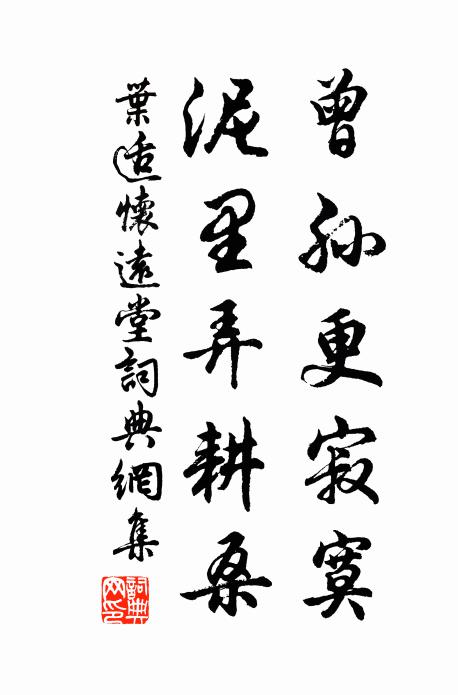 曾孙更寂寞
泥里弄耕桑
葉适懷遠堂詞典網集
詞典
网印